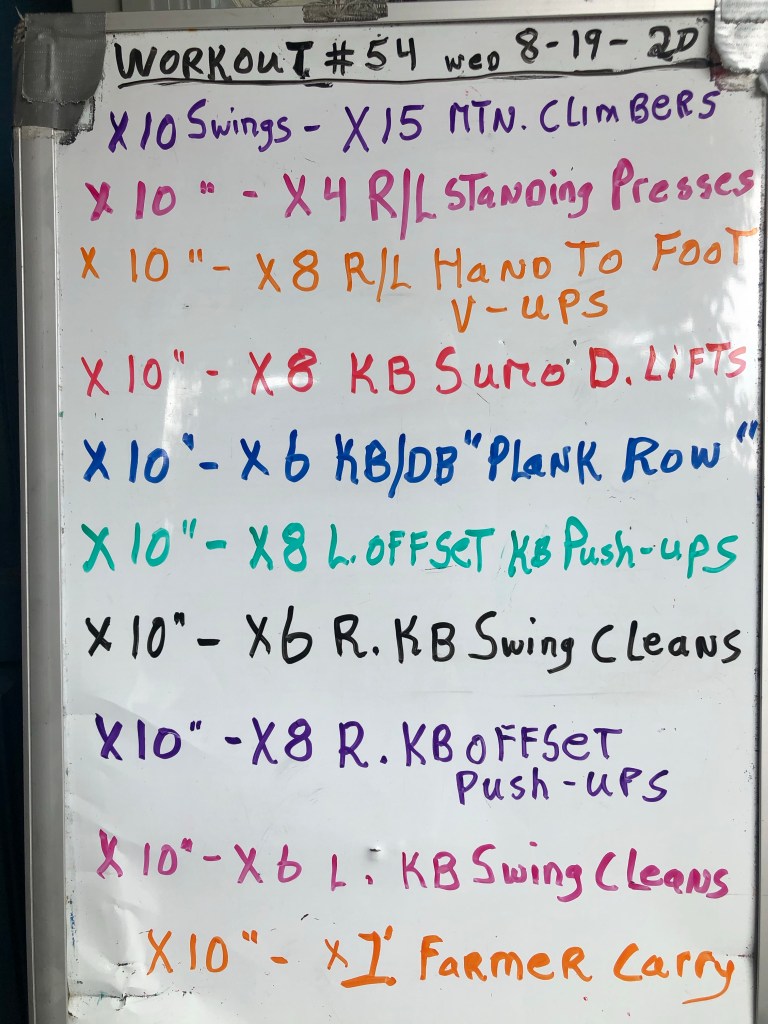 WORKOUT #54 WED 8-19-20
X10 Swings - X15 MTN. CLIMBERS
X 10 " - X4 R/L STANDING Presses
X 10 " - X8 R/L HAND TO FOOT
V-UPS
X 10 " - X8 KB SUMO D. LIFTS
X 10 " - X6 KB/DB "PLANK ROW"
X 10 " - X8 L. OFFSET KB Push-ups
X 10 " - X6 R. KB Swing CLEANS
X10 " - X8 R. KB OFFSET
Push-UPS
X 10 " - X6 L. KB Swing CLeans
X10 " - X1' FARMER Carry